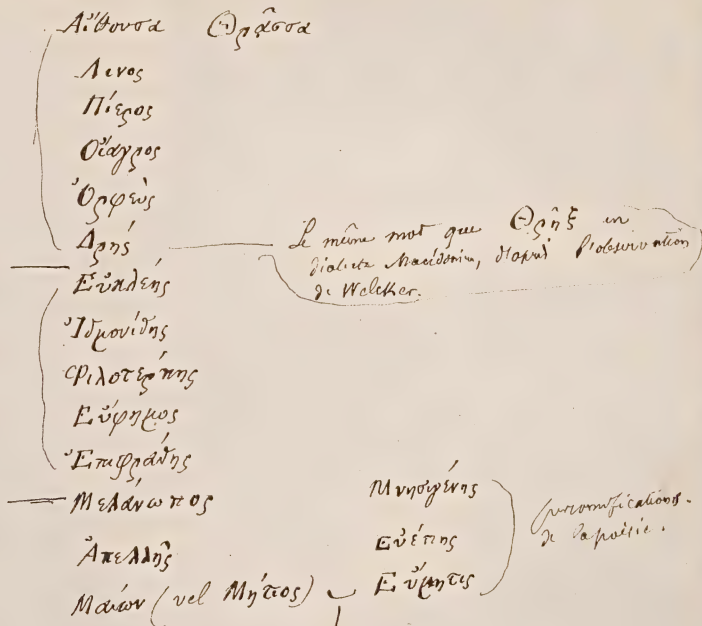 Αἴθουσα Θρᾷσσα
Λινος
Πίερος
Οἴαγρος
Ὀρφεὺς
Δρής
Le même mot que Θρῂξ en
dialecte Macédonien, d'après l'observation
de Welcker.
Εὐκλέης
Ἰδμονίδης
Φιλοτέρπης
Εὔφημος
Ἐπιφράδης
Μελάνωπος
Ἀπελλῆς
Μαίων (vel Μήτιος)
Μνησιγένης
Εὐέπης
Εὔμητις
personnifications
de la poésie.